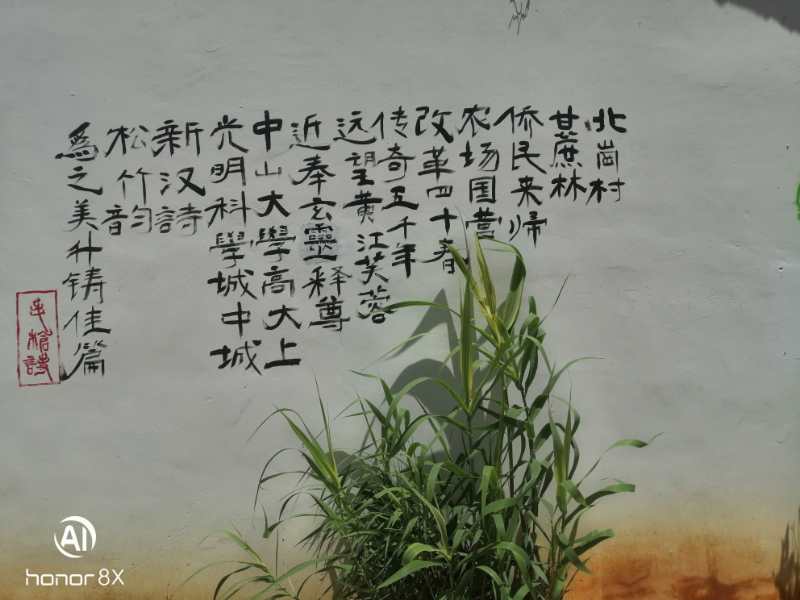 北岗村
甘蔗林
侨民来帰
农场国营
改革四十春
传奇五千年
远望黄江芙蓉
近奉玄靈释尊
中山大學高大上
光明科學城中城
新汉詩
松竹韵
為之美升铸佳篇
AI
honor 8X